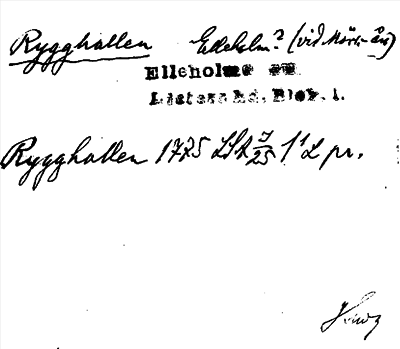 Rygghallen Elleholm? (vid Mörr-ån)
Elleholms sn.
Listers hd. Blek. l.
Rygghallen 1725 LSA 1' L pr.